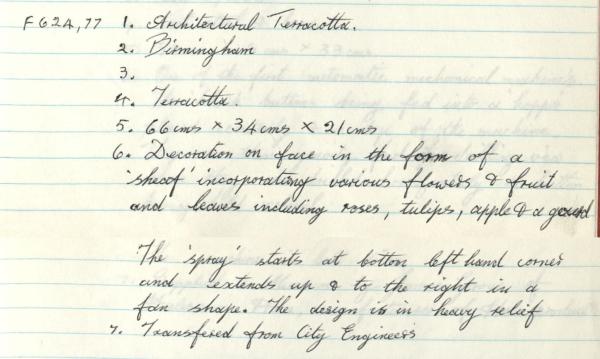 F62A,77 1. Architectural Terracotta.
2. Birmingham
3.
4. Terracotta.
5. 66cms × 34cms × 21cms
6. Decoration on face in the form of a
'sheaf' incorporating various flowers & fruit
and leaves including roses, tulips, apple & a gourd
The 'spray' starts at bottom left hand corner
and extends up & to the right in a
fan shape. The design is in heavy relief
7. Transfered from City Engineers